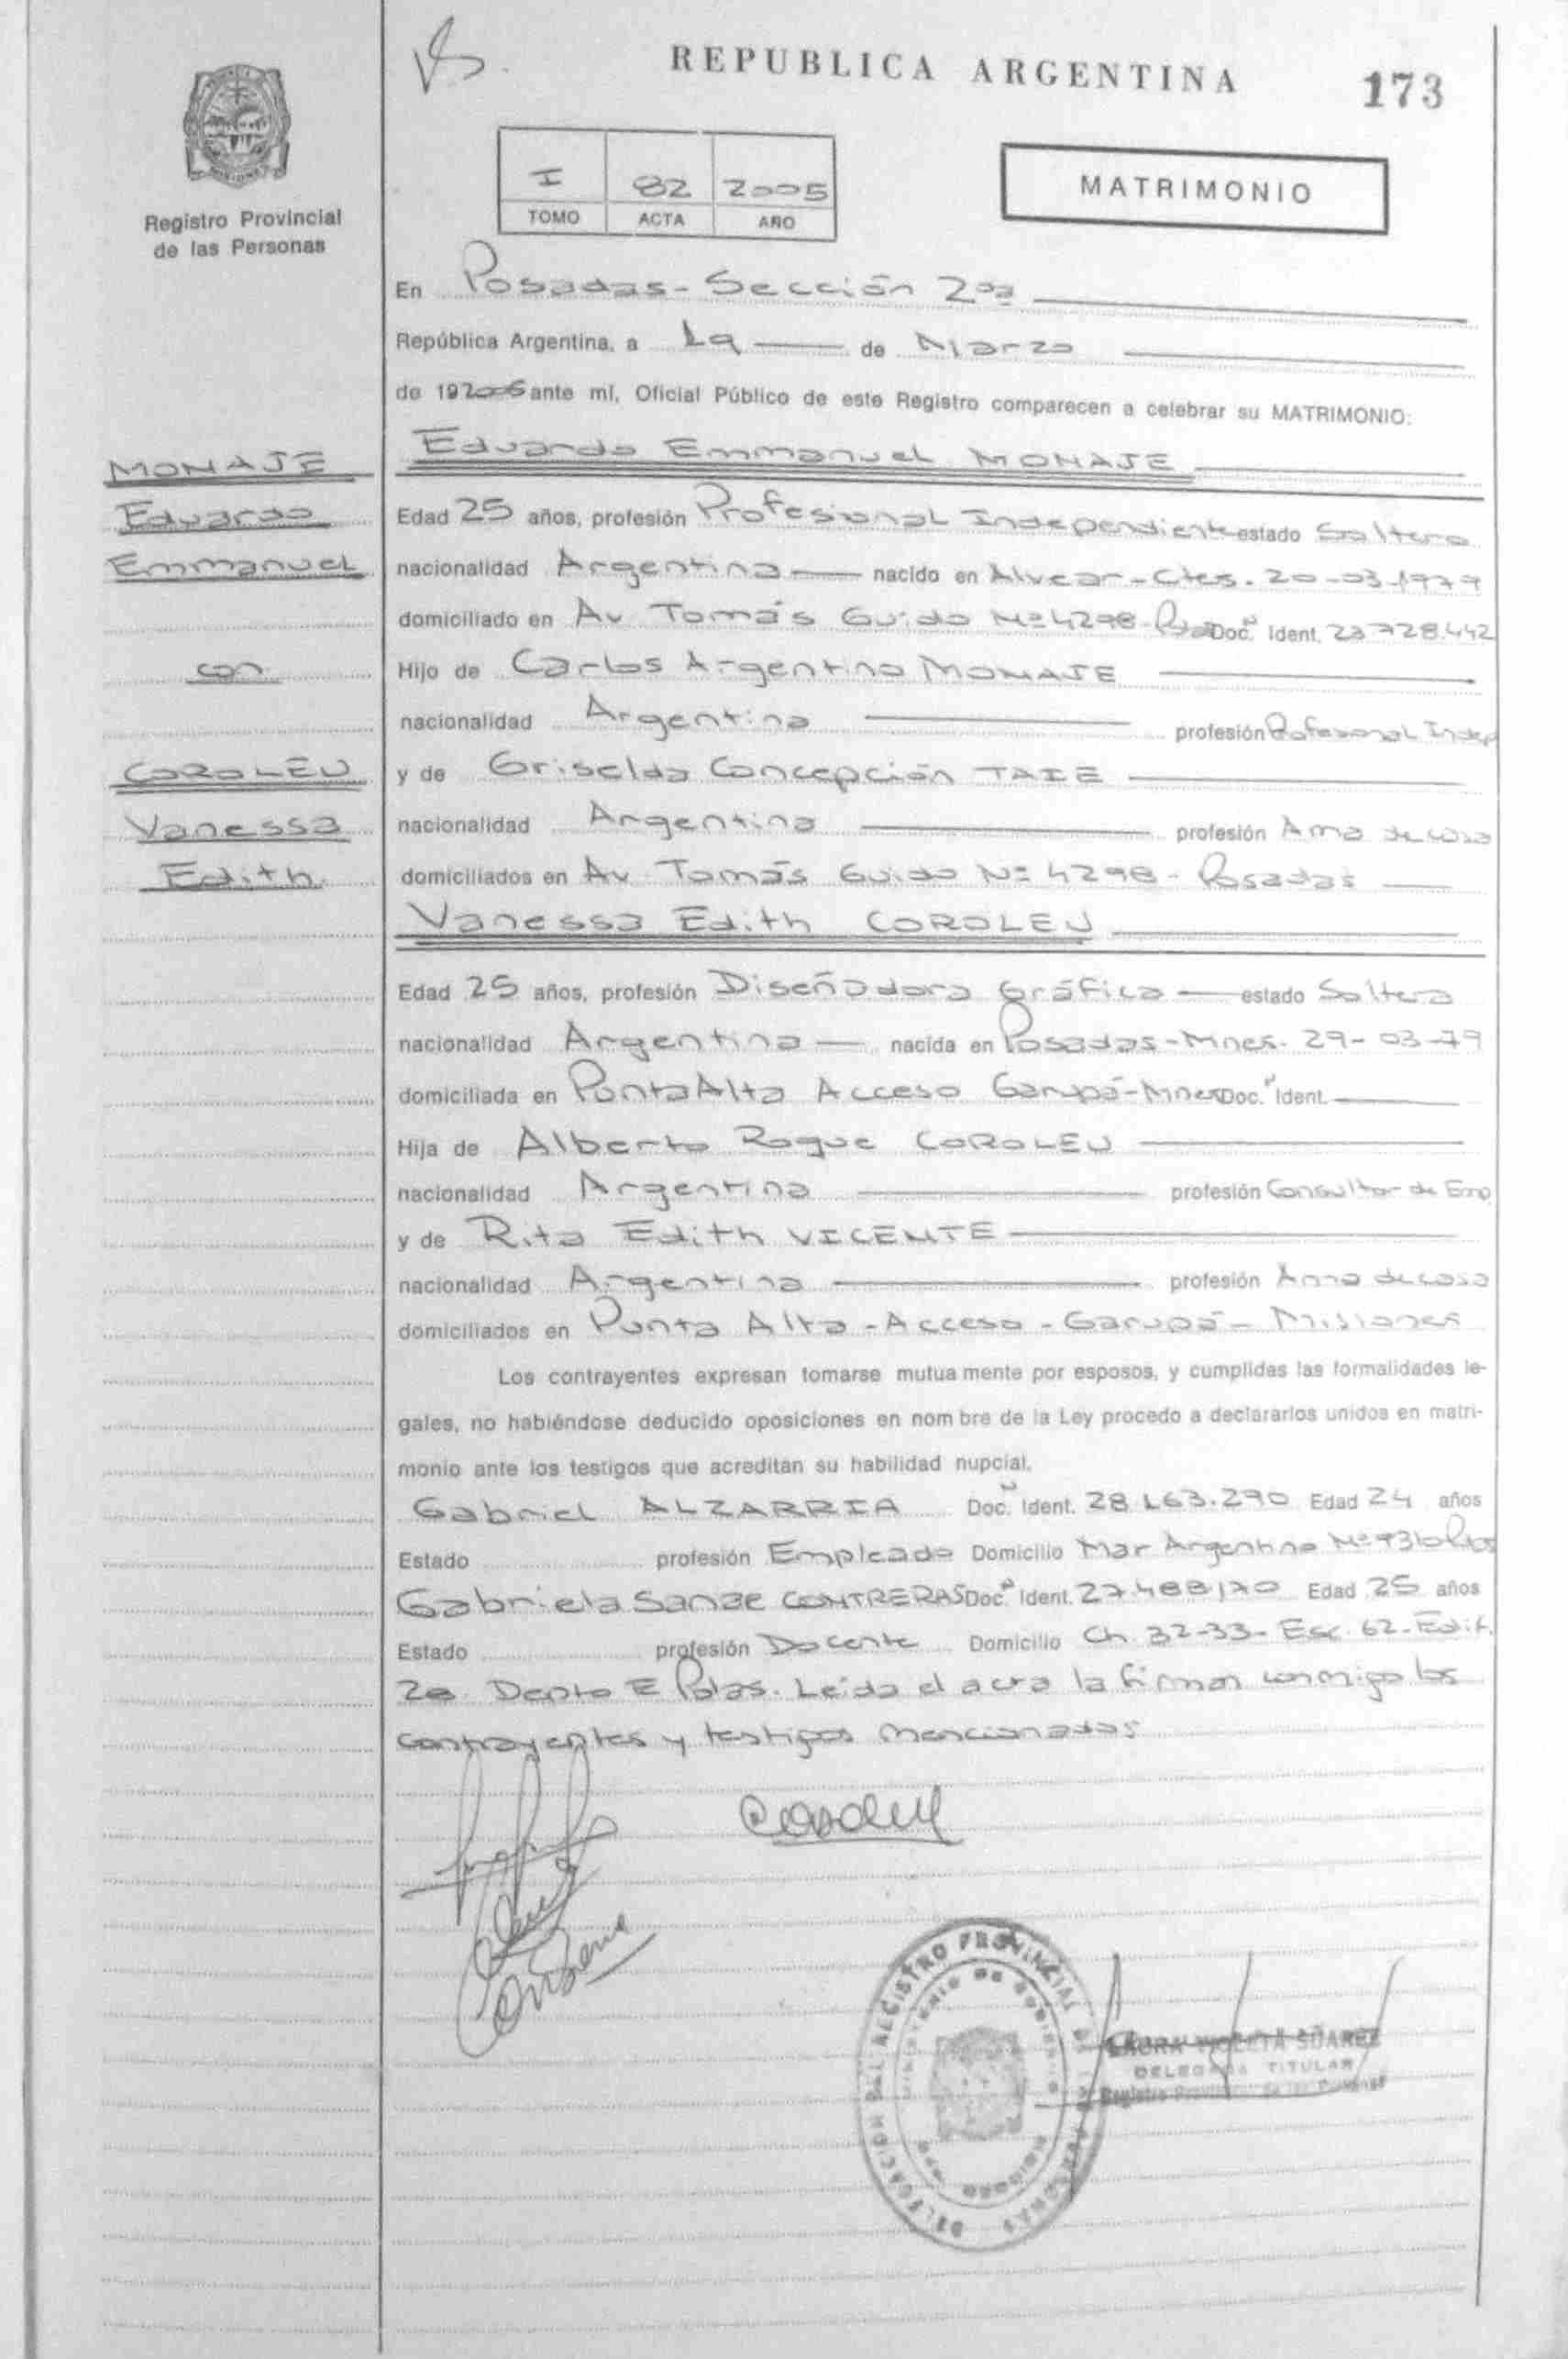 REPUBLICA ARGENTINA
173
I 82 2005
TOMO ACTA AÑO
MATRIMONIO
Registro Provincial
de las Personas
En Posadas - Sección 2da
República Argentina, a de Marzo
de 19 2005 ante mí, Oficial Público de este Registro comparecen a celebrar su MATRIMONIO:
MONAJE
Eduardo
Emmanuel
con
COROLEU
Vanessa
Edith
Eduardo Emmanuel MONAJE
Edad 25 años, profesión Profesional Independiente estado Soltero
nacionalidad Argentina nacido en Alvear - Ctes. 20-03-1979
domiciliado en Av Tomás Guido Nº 4298 Doc. Ident. 728.442
Hijo de Carlos Argentino MONAJE
nacionalidad Argentina profesión Profesional Indep
y de Griselda Concepción TAIE
nacionalidad Argentina profesión Ama de casa
domiciliados en Av Tomás Guido Nº 4298 - Posadas
Vanessa Edith COROLEU
Edad 25 años, profesión Diseñadora Gráfica estado Soltera
nacionalidad Argentina nacida en Posadas - Mnes. 29-03-79
domiciliada en Punta Alta Acceso Garupá - Mnes Doc. Ident.
Hija de Alberto Roque COROLEU
nacionalidad Argentina profesión Consultor de Emp
y de Rita Edith VICENTE
nacionalidad Argentina profesión Ama de casa
domiciliados en Punta Alta - Acceso - Garupá - Misiones
Los contrayentes expresan tomarse mutua mente por esposos, y cumplidas las formalidades le-
gales, no habiéndose deducido oposiciones en nom bre de la Ley procedo a declararlos unidos en matri-
monio ante los testigos que acreditan su habilidad nupcial.
Gabriel ALZARRIA Doc. Ident. 28.163.290 Edad 24 años
Estado profesión Empleado Domicilio Mar Argentino Nº
Gabriela Sanae CONTRERAS Doc. Ident. 27.488.170 Edad 25 años
Estado profesión Docente Domicilio Ch. 32-33- Esc. 62- Edif.
Depto E Pdas. Leída el acta la firman conmigo los
contrayentes y testigos mencionados
Coroleu
DELEGACION DEL REGISTRO PROVINCIAL DE LAS PERSONAS
MINISTERIO DE GOBIERNO
MISIONES
LAURA VIOLETA SUAREZ
DELEGADA TITULAR
Registro Provincial de las Personas